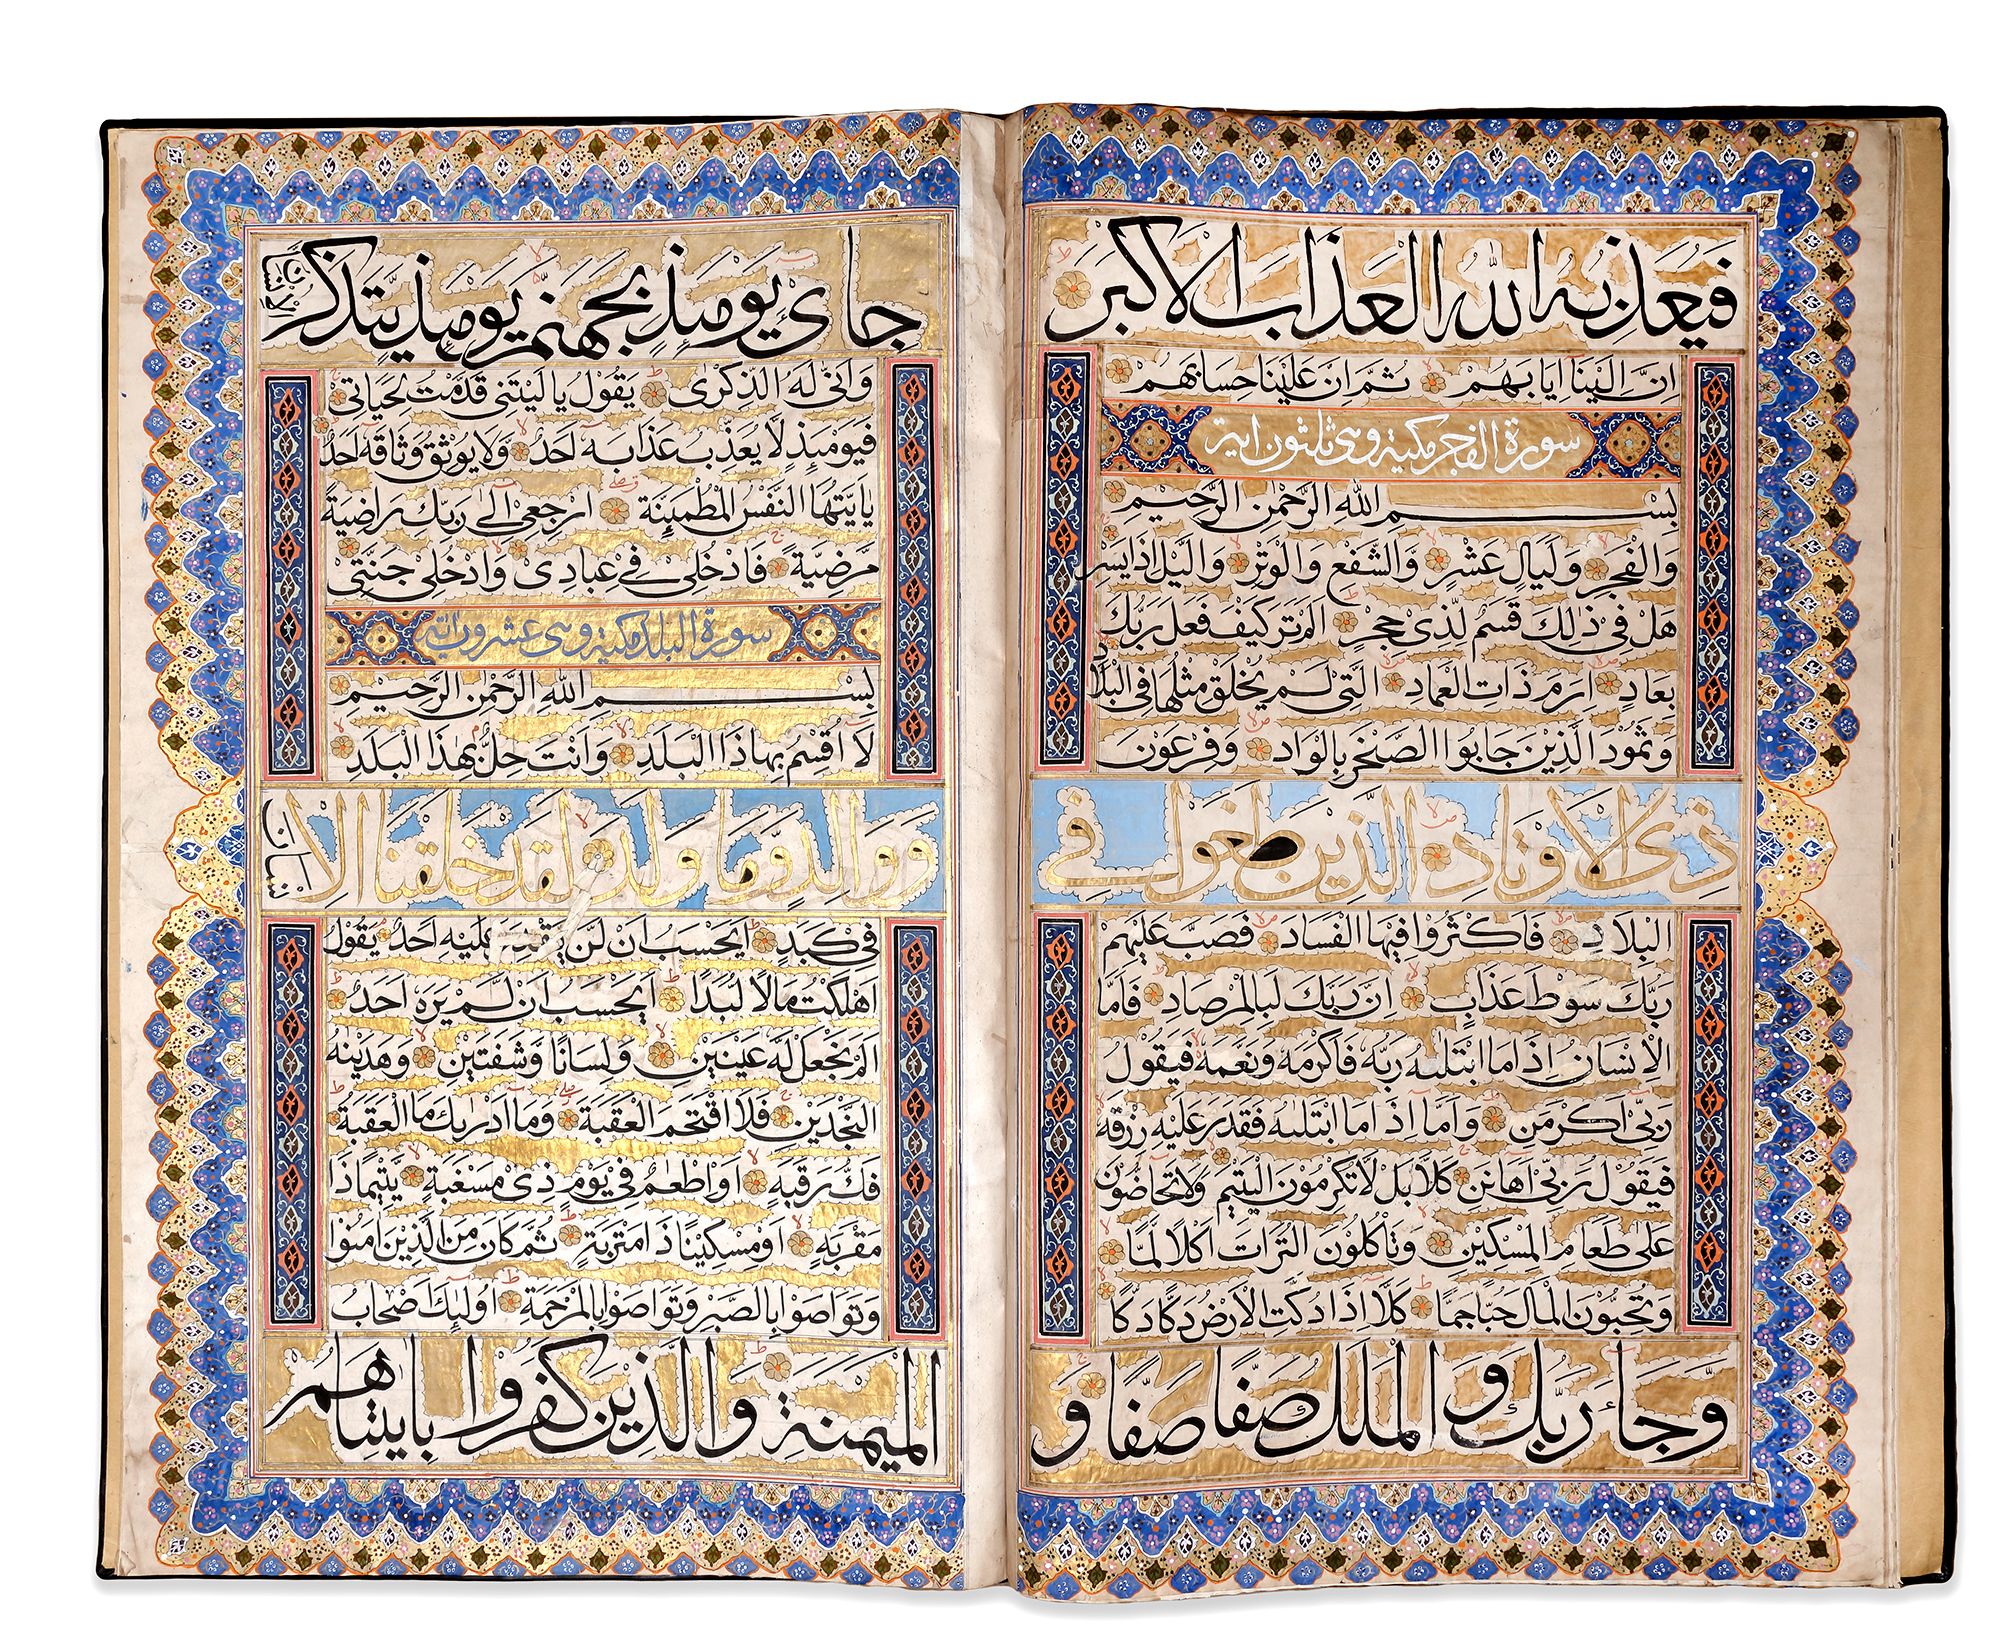 فَيُعَذِّبُهُ اللّٰهُ الْعَذَابَ الْاَكْبَرَ
اِنَّ اِلَيْنَآ اِيَابَهُمْ ثُمَّ اِنَّ عَلَيْنَا حِسَابَهُمْ
سورة الفجر مكية وهى ثلثون اية
بِسْمِ اللّٰهِ الرَّحْمٰنِ الرَّحِيْمِ
وَالْفَجْرِ وَلَيَالٍ عَشْرٍ وَّالشَّفْعِ وَالْوَتْرِ وَالَّيْلِ اِذَا يَسْرِ
هَلْ فِيْ ذٰلِكَ قَسَمٌ لِّذِيْ حِجْرٍ اَلَمْ تَرَ كَيْفَ فَعَلَ رَبُّكَ
بِعَادٍ اِرَمَ ذَاتِ الْعِمَادِ الَّتِيْ لَمْ يُخْلَقْ مِثْلُهَا فِي الْبِلَادِ
وَثَمُوْدَ الَّذِيْنَ جَابُوا الصَّخْرَ بِالْوَادِ وَفِرْعَوْنَ
ذِى الْاَوْتَادِ الَّذِيْنَ طَغَوْا فِى
الْبِلَادِ فَاَكْثَرُوْا فِيْهَا الْفَسَادَ فَصَبَّ عَلَيْهِمْ
رَبُّكَ سَوْطَ عَذَابٍ اِنَّ رَبَّكَ لَبِالْمِرْصَادِ فَاَمَّا
الْاِنْسَانُ اِذَا مَا ابْتَلٰىهُ رَبُّهُ فَاَكْرَمَهُ وَنَعَّمَهُ فَيَقُوْلُ
رَبِّيْ اَكْرَمَنِ وَاَمَّا اِذَا مَا ابْتَلٰىهُ فَقَدَرَ عَلَيْهِ رِزْقَهُ
فَيَقُوْلُ رَبِّيْ اَهَانَنِ كَلَّا بَلْ لَا تُكْرِمُوْنَ الْيَتِيْمَ وَلَا تَحَاضُّوْنَ
عَلٰى طَعَامِ الْمِسْكِيْنِ وَتَاْكُلُوْنَ التُّرَاثَ اَكْلًا لَّمًّا
وَتُحِبُّوْنَ الْمَالَ حُبًّا جَمًّا كَلَّا اِذَا دُكَّتِ الْاَرْضُ دَكًّا دَكًّا
وَّجَاءَ رَبُّكَ وَالْمَلَكُ صَفًّا صَفًّا وَ
جِایْءَ يَوْمَئِذٍ بِجَهَنَّمَ يَوْمَئِذٍ يَتَذَكَّرُ الْاِنْسَانُ
وَاَنّٰى لَهُ الذِّكْرٰى يَقُوْلُ يَا لَيْتَنِيْ قَدَّمْتُ لِحَيَاتِيْ
فَيَوْمَئِذٍ لَّا يُعَذِّبُ عَذَابَهٓ اَحَدٌ وَّلَا يُوْثِقُ وَثَاقَهٓ اَحَدٌ
يٰآ اَيَّتُهَا النَّفْسُ الْمُطْمَئِنَّةُ ارْجِعِيْ اِلٰى رَبِّكِ رَاضِيَةً
مَّرْضِيَّةً فَادْخُلِيْ فِيْ عِبَادِيْ وَادْخُلِيْ جَنَّتِيْ
سورة البلد مكية وهى عشرون اية
بِسْمِ اللّٰهِ الرَّحْمٰنِ الرَّحِيْمِ
لَآ اُقْسِمُ بِهَاذَا الْبَلَدِ وَاَنْتَ حِلٌّ بِهٰذَا الْبَلَدِ
وَوَالِدٍ وَّمَا وَلَدَ لَقَدْ خَلَقْنَا الْاِنْسَانَ
فِيْ كَبَدٍ اَيَحْسَبُ اَنْ لَّنْ يَّقْدِرَ عَلَيْهِ اَحَدٌ يَقُوْلُ
اَهْلَكْتُ مَالًا لُّبَدًا اَيَحْسَبُ اَنْ لَّمْ يَرَهُ اَحَدٌ
اَلَمْ نَجْعَلْ لَّهُ عَيْنَيْنِ وَلِسَانًا وَّشَفَتَيْنِ وَهَدَيْنٰهُ
النَّجْدَيْنِ فَلَا اقْتَحَمَ الْعَقَبَةَ وَمَا اَدْرٰىكَ مَا الْعَقَبَةُ
فَكُّ رَقَبَةٍ اَوْ اِطْعَامٌ فِيْ يَوْمٍ ذِيْ مَسْغَبَةٍ يَّتِيْمًا ذَا
مَقْرَبَةٍ اَوْ مِسْكِيْنًا ذَا مَتْرَبَةٍ ثُمَّ كَانَ مِنَ الَّذِيْنَ اٰمَنُوْا
وَتَوَاصَوْا بِالصَّبْرِ وَتَوَاصَوْا بِالْمَرْحَمَةِ اُولٰٓئِكَ اَصْحَابُ
الْمَيْمَنَةِ وَالَّذِيْنَ كَفَرُوْا بِاٰيٰتِنَا هُمْ